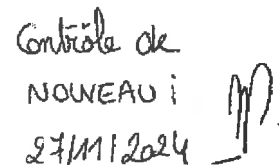 Contrôle de
NOUVEAU :
27/11/2024